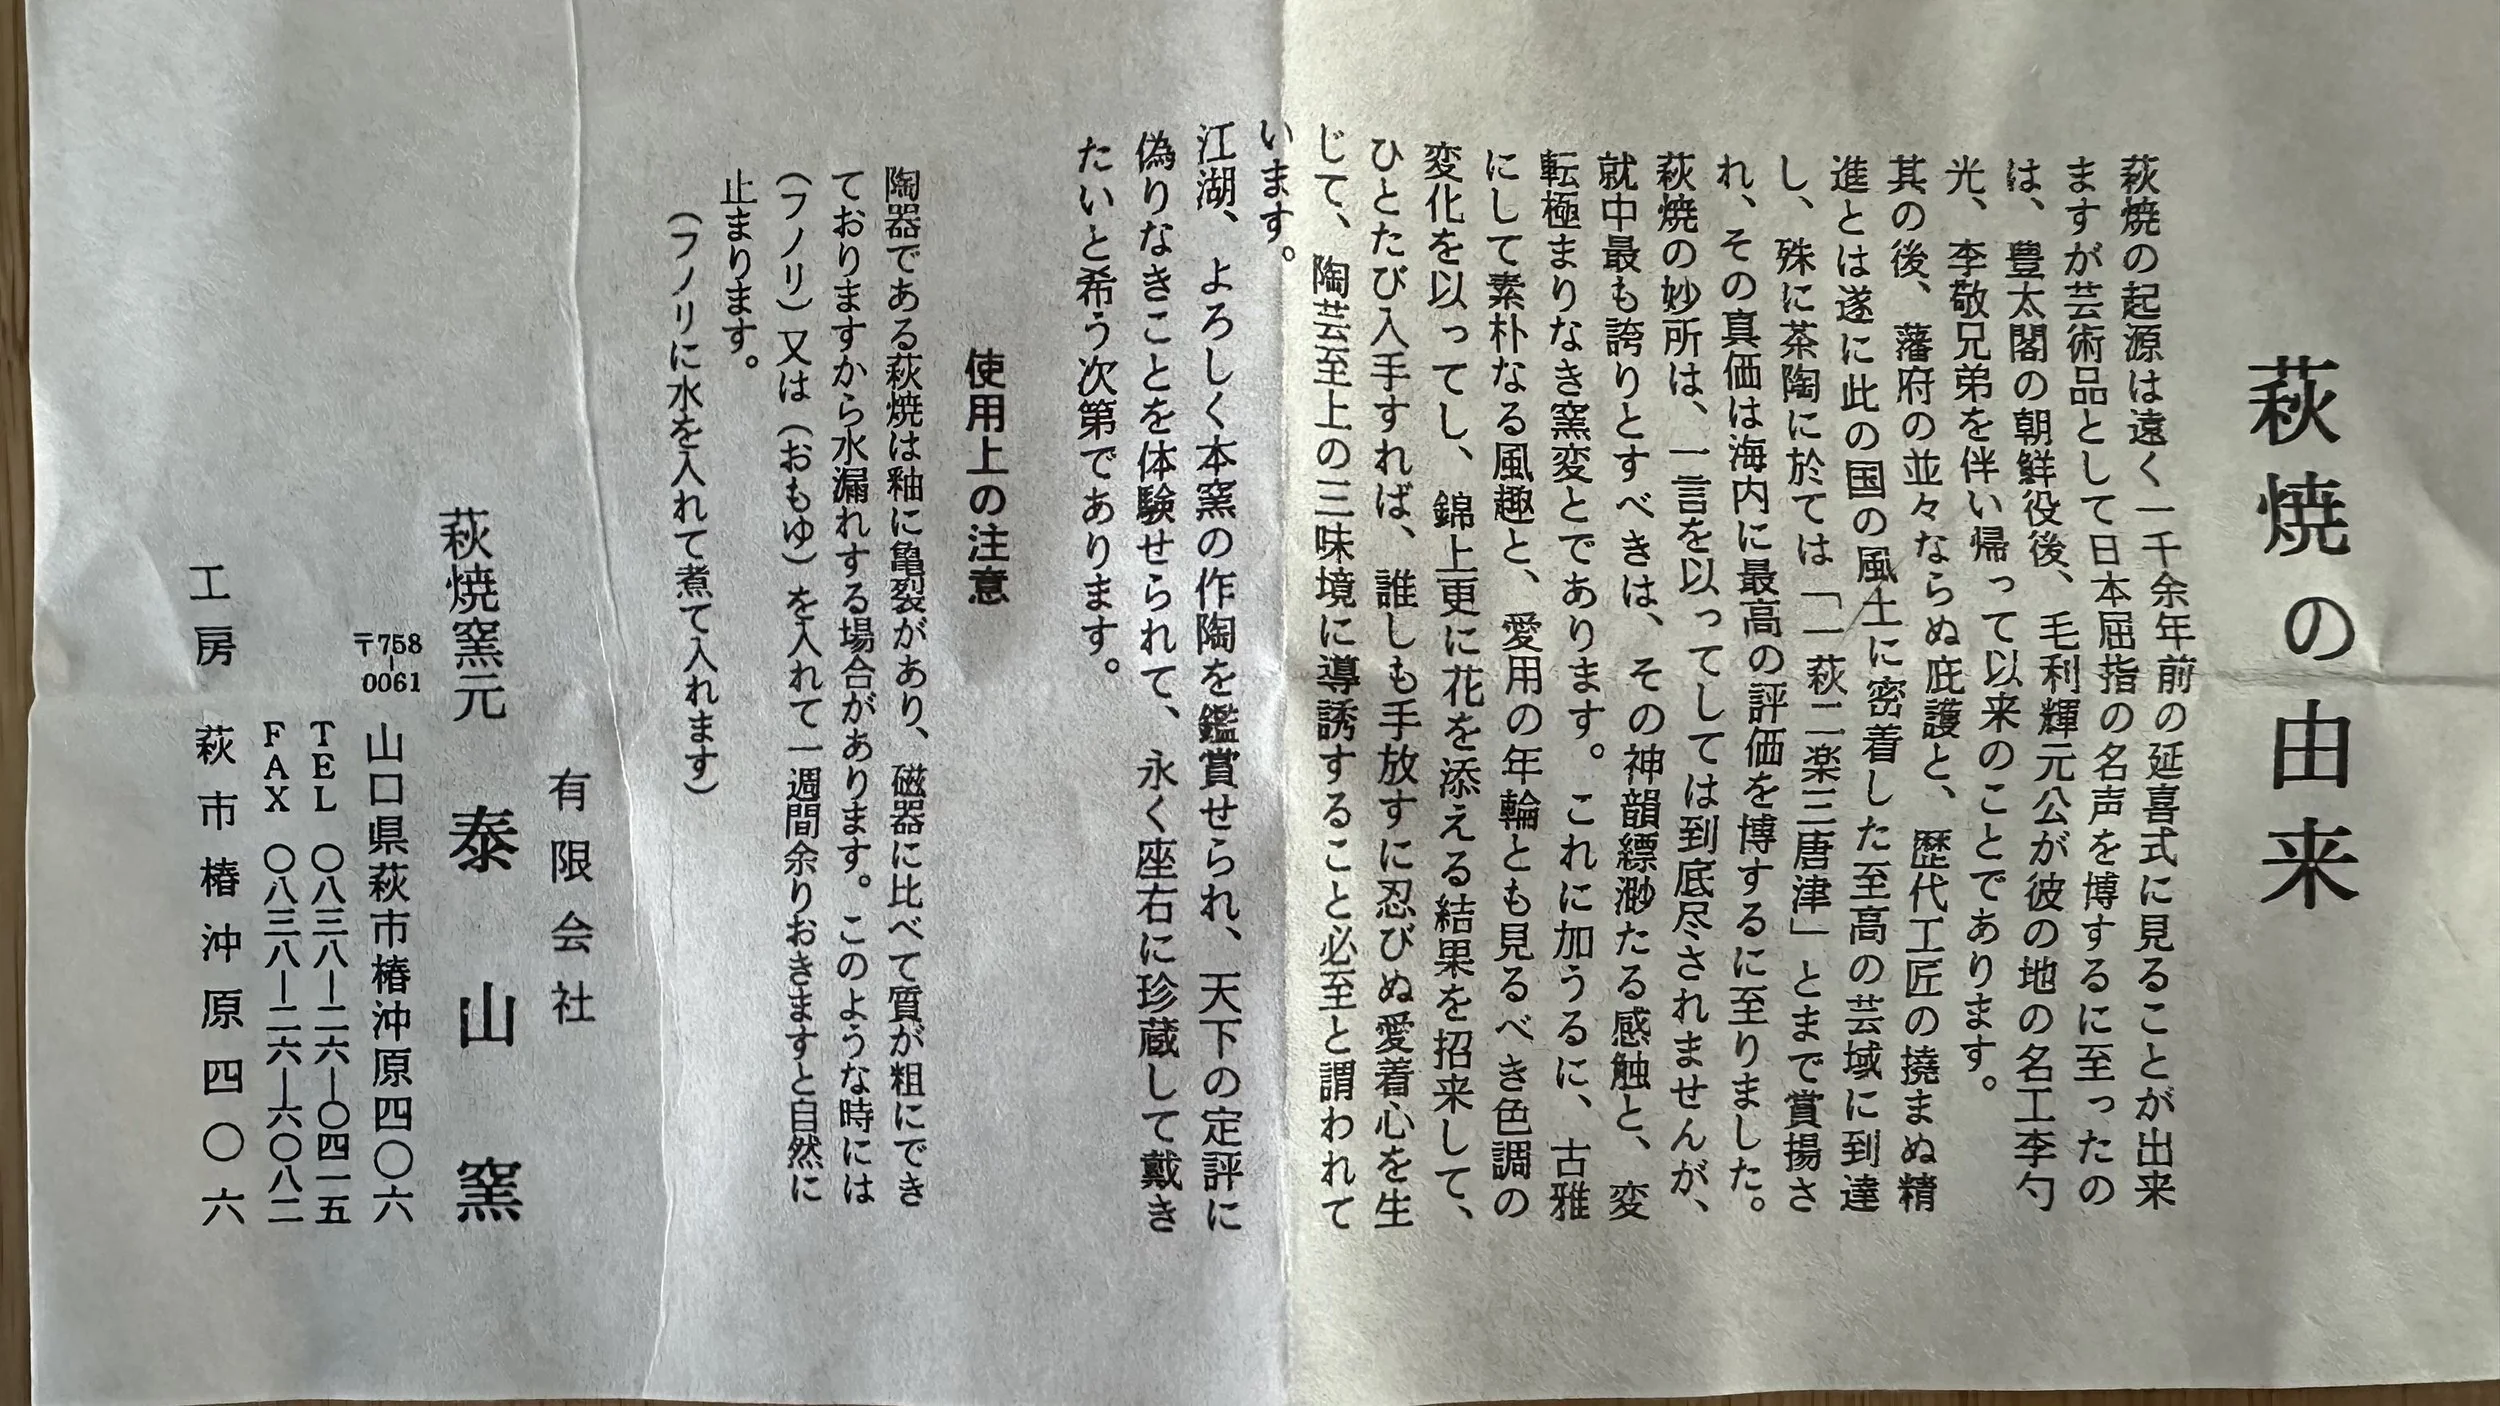 萩焼の由来
萩焼の起源は遠く一千余年前の延喜式に見ることが出来
ますが芸術品として日本屈指の名声を博するに至ったの
は、豊太閤の朝鮮役後、毛利輝元公が彼の地の名工李勺
光、李敬兄弟を伴い帰って以来のことであります。
其の後、藩府の並々ならぬ庇護と、歴代工匠の撓まぬ精
進とは遂に此の国の風土に密着した至高の芸域に到達
し、殊に茶陶に於ては「一萩二楽三唐津」とまで賞揚さ
れ、その真価は海内に最高の評価を博するに至りました。
萩焼の妙所は、一言を以ってしては到底尽されませんが、
就中最も誇りとすべきは、その神韻縹渺たる感触と、変
転極まりなき窯変とであります。これに加うるに、古雅
にして素朴なる風趣と、愛用の年輪とも見るべき色調の
変化を以ってし、錦上更に花を添える結果を招来して、
ひとたび入手すれば、誰しも手放すに忍びぬ愛着心を生
じて、陶芸至上の三味境に導誘すること必至と謂われて
います。
江湖、よろしく本窯の作陶を鑑賞せられ、天下の定評に
偽りなきことを体験せられて、永く座右に珍蔵して戴き
たいと希う次第であります。
使用上の注意
陶器である萩焼は釉に亀裂があり、磁器に比べて質が粗にでき
ておりますから水漏れする場合があります。このような時には
(フノリ)又は(おもゆ)を入れて一週間余りおきますと自然に
止まります。
(フノリに水を入れて煮て入れます)
有限会社
萩焼窯元 泰山窯
〒758-0061 山口県萩市椿沖原四〇六
TEL 〇八三八―二六―〇四一五
FAX 〇八三八―二六―六〇八二
工房 萩市椿沖原四〇六